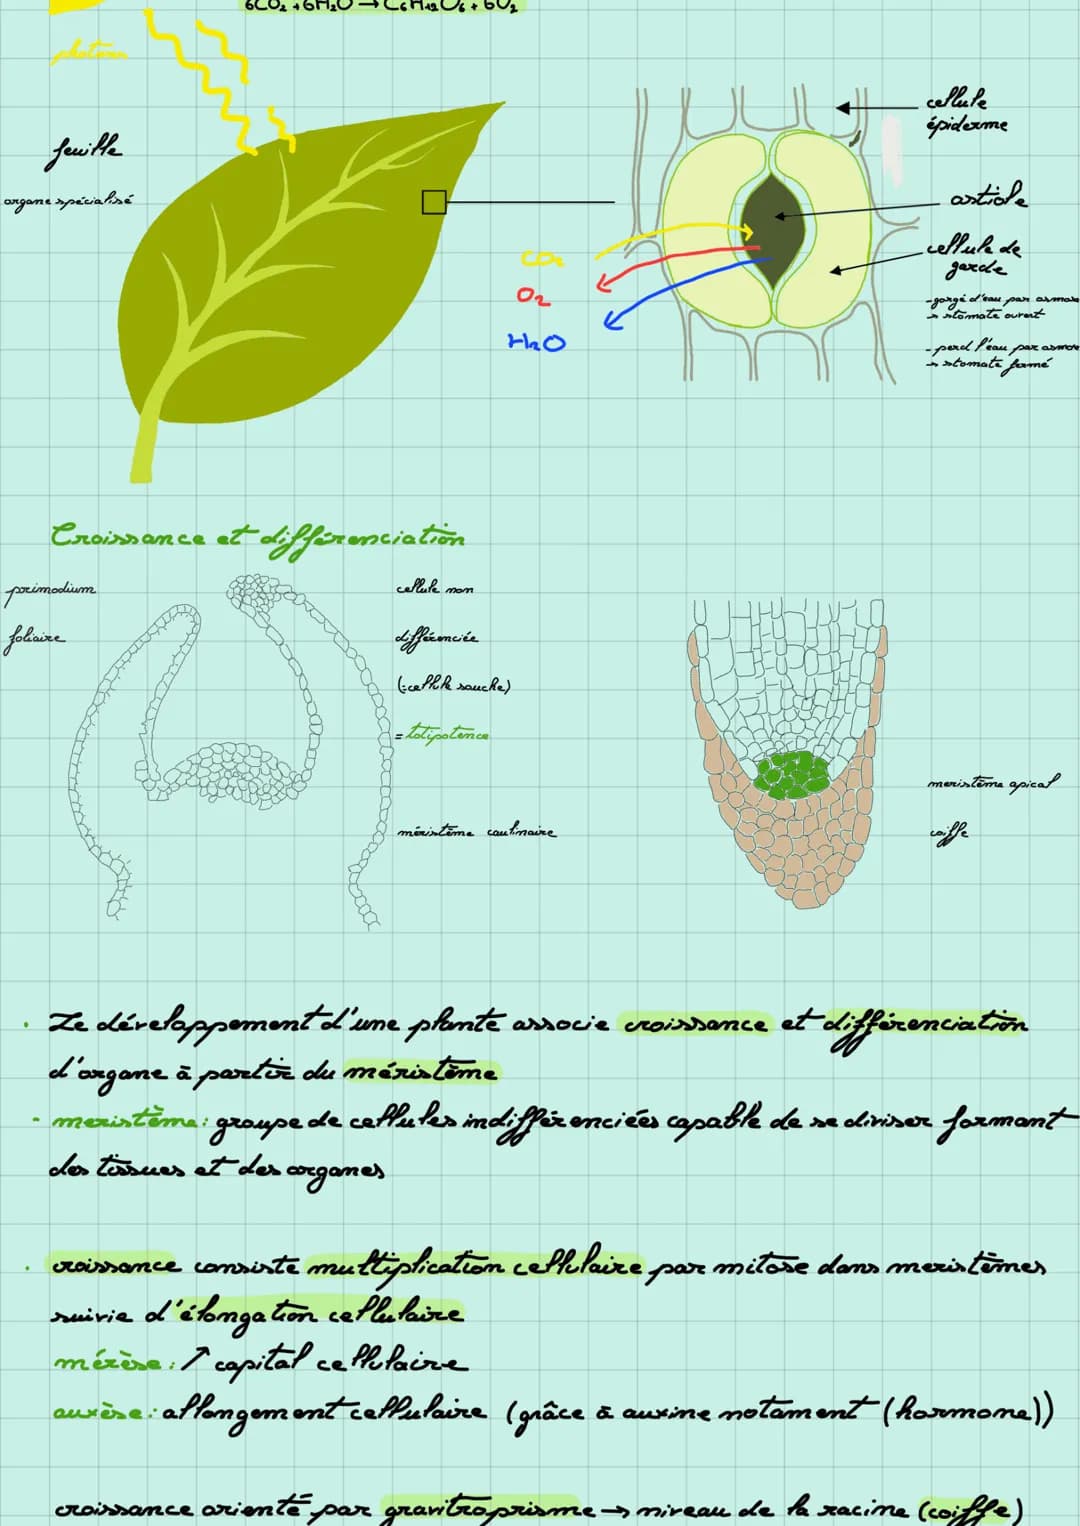 6CO₂ + 6H₂O → C₆H₁₂O₆ + 6O₂
photon
feuille
organe spécialisé
cellule
épiderme
ostiole
cellule de
garde
- gorgé d'eau par osmose
→ stomate ouvert
- perd l'eau par osmose
→ stomate fermé
CO₂
O₂
H₂O
Croissance et différenciation
primodium
foliaire
cellule non
différenciée
(=cellule souche)
= totipotence
méristème caulinaire
meristème apical
coiffe
· Le développement d'une plante associe croissance et différenciation
d'organe à partir du méristème
- meristème: groupe de cellules indifférenciées capable de se diviser formant
des tissues et des organes
· croissance consiste multiplication cellulaire par mitose dans meristèmes
suivie d'élongation cellulaire
mérèse: ↗ capital cellulaire
auxèse: allongement cellulaire (grâce à auxine notament (hormone))
croissance orienté par gravitroprisme → niveau de la racine (coiffe)